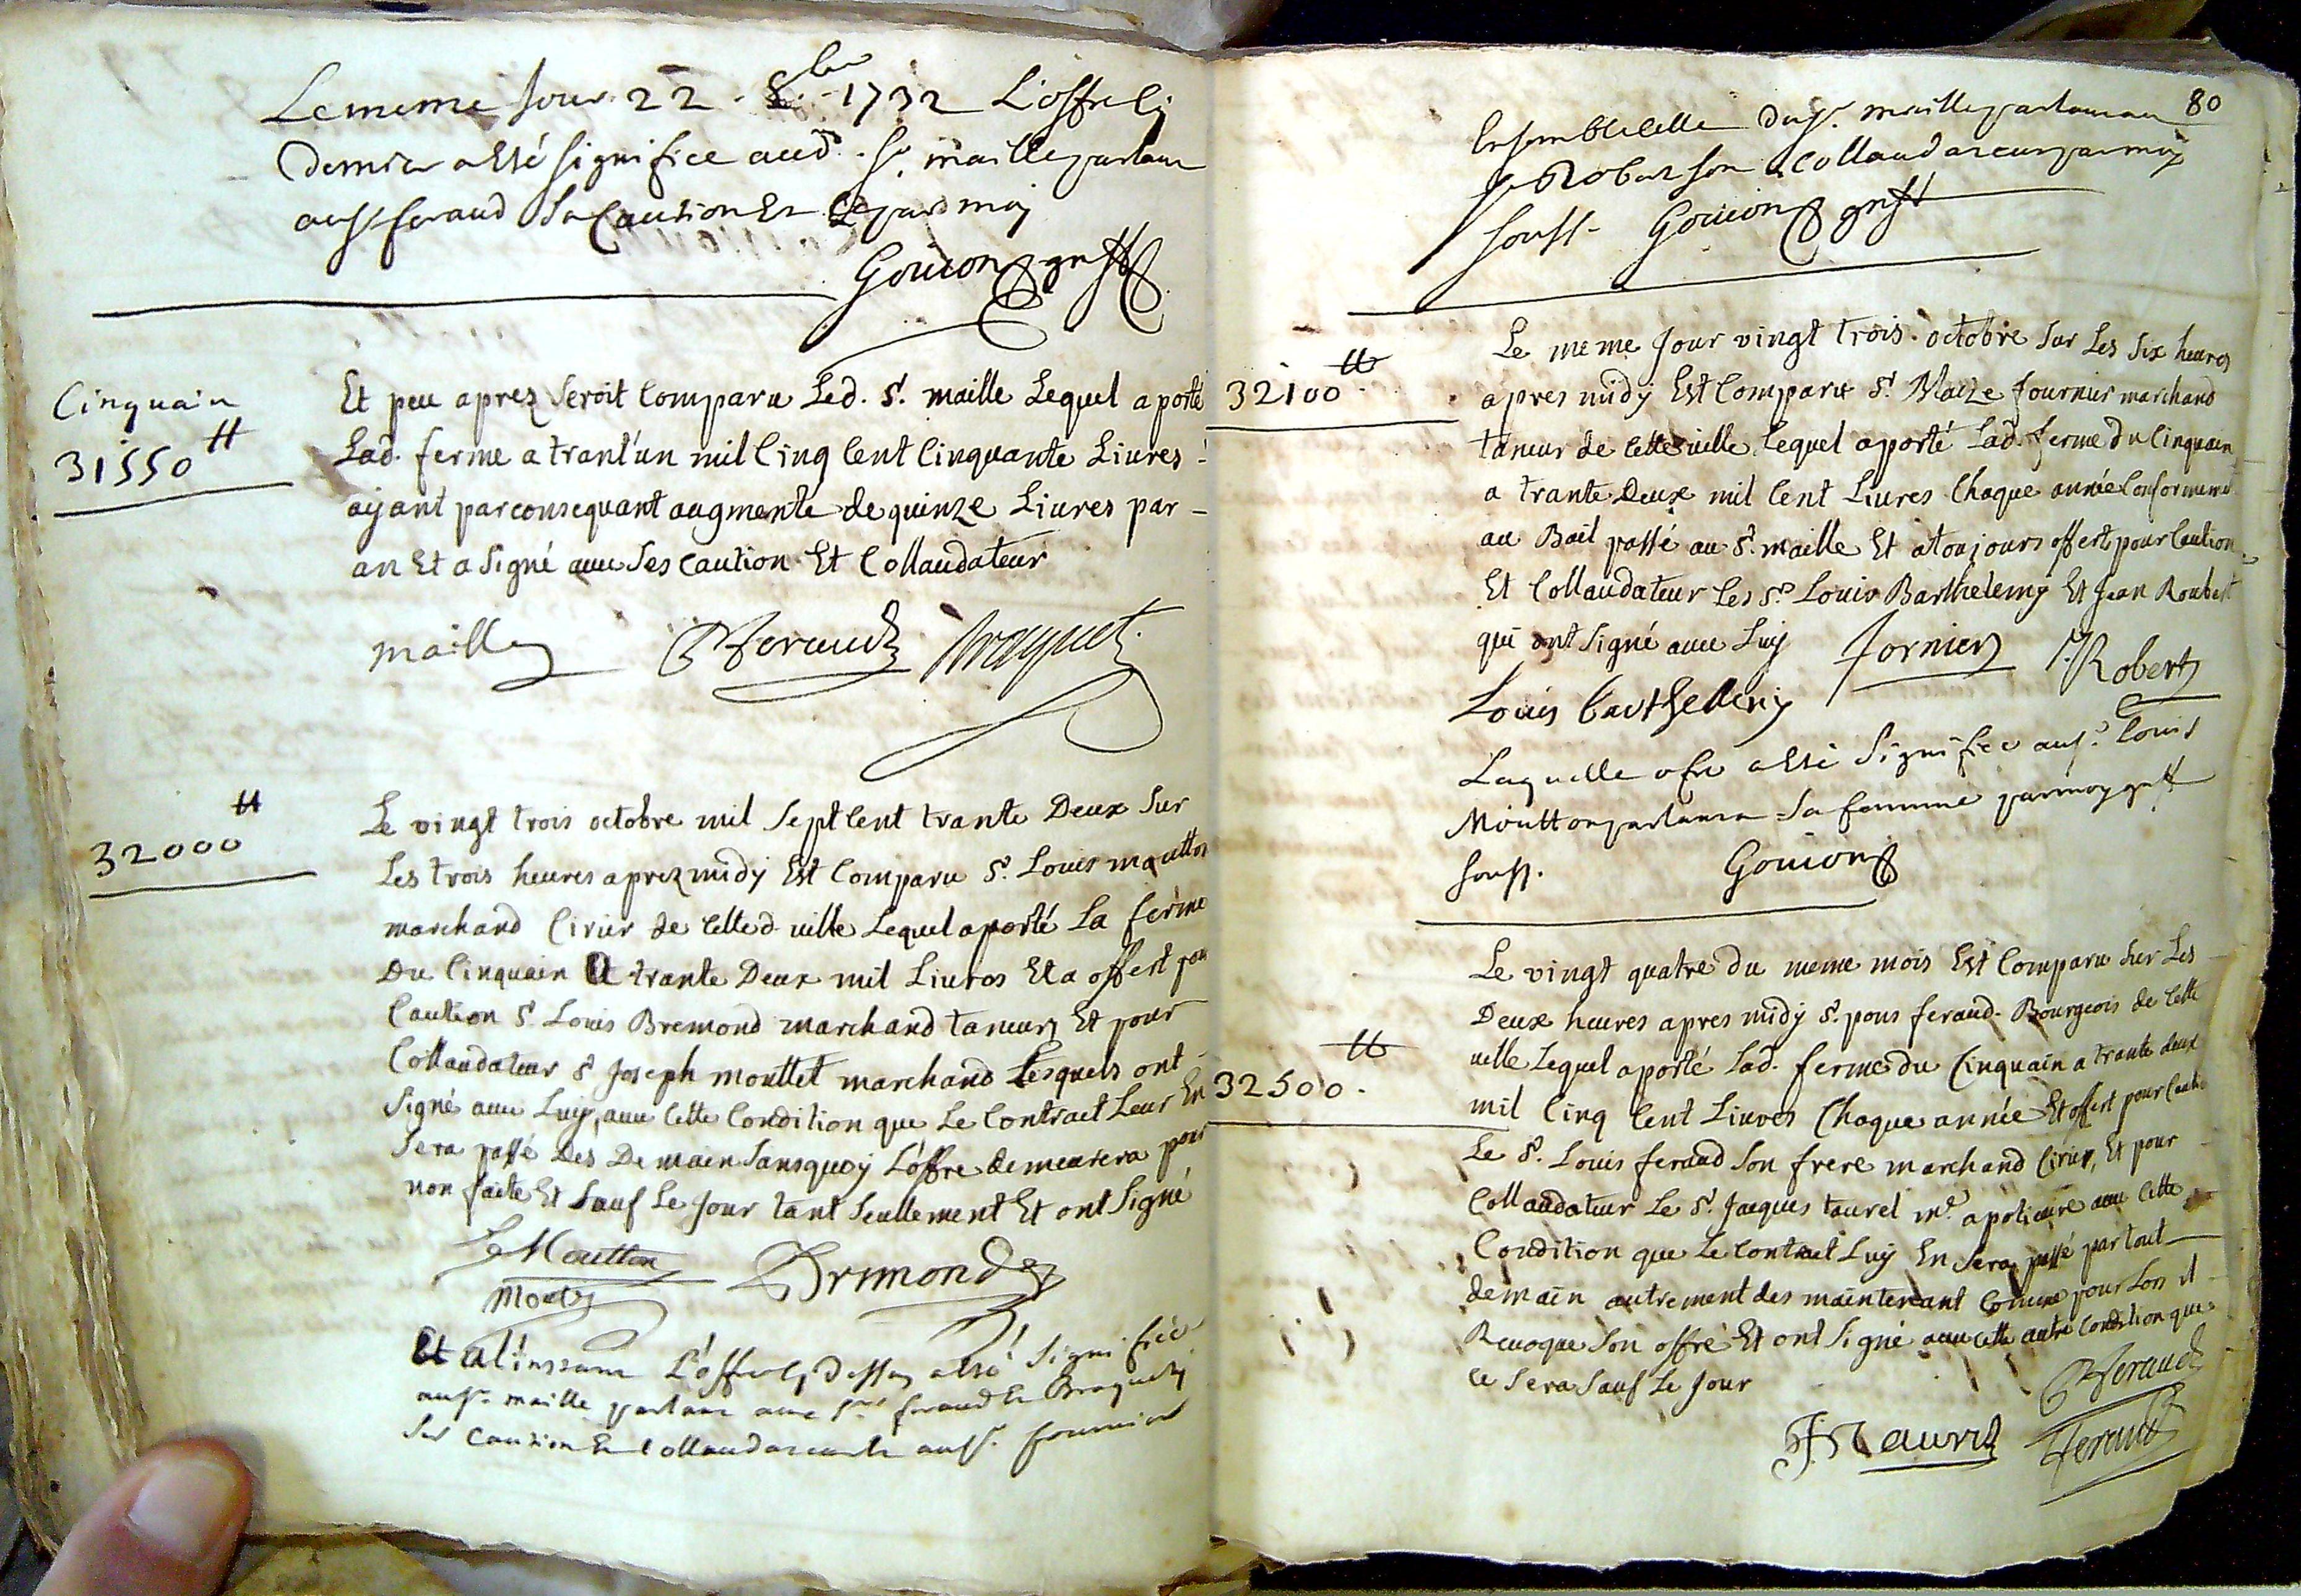 Le meme Jour 22. 8.bre 1732 L'offre Cy
Dernier a esté signifiée aud. Sr. maille parlant
au sr feraud sa Caution Et Ce par moy
Gouion greff
Cinquain
31550 tt
Et peu aprez seroit Comparu Led. Sr. maille Lequel a porté
Lad. ferme a trant'un mil Cinq Cent Cinquante Livres
ayant par consequant augmenté de quinze Livres par
an Et a Signé avec Ses Caution Et Collaudateur
maille Feraud Braquet
32000 tt
Le vingt trois octobre mil Sept Cent trante Deux Sur
Les trois heures aprez midy Est Comparu Sr. Louis moutton
marchand Cirier de Cette d. ville Lequel a porté La ferme
Du Cinquain A trante Deux mil Livres Et a offert pour
Caution Sr. Louis Bremond marchand taneur, Et pour
Collaudateur Sr Joseph mouttet marchand Lesquels ont
Signé avec Luy, avec Cette Condition que Le Contract Leur En
Sera passé Dés Demain Sans quoy L'offre demeurera pour
non faite Et Sauf Le Jour tant Seullement Et ont Signé
L Moutton Brimond
Et a l'instant L'offre Cy dessus a esté signifiée
au sr. maille parlant aux srs feraud Et Braquet
Ses Caution Et Collaudateur Et au sr. fournier
80
Ensemble Celle du sr. maille parlant au
sr Robert son Collaudateur par moy
souss. Gouion greff
32100 tt
Le meme Jour vingt trois octobre Sur Les Six heures
apres midy Est Comparu Sr. Blaize fournier marchand
taneur de Cette ville Lequel a porté Lad. ferme du Cinquain
a trante Deux mil Cent Livres Chaque année Conformement
au Bail passé au Sr. maille Et a toujours offert pour Caution
Et Collaudateur Les Srs Louis Barthelemy Et Jean Roubert
qui ont Signé avec Luy Fornier J Robert
Louis barthellemy
Laquelle ofre a esté Signifiée au sr. Louis
Moutton parlant a Sa femme par moy greff
souss. Gouion
32500 tt
Le vingt quatre du meme mois Est Comparu Sur Les
Deux heures apres midy Sr. pons feraud Bourgeois de Cette
ville Lequel a porté Lad. ferme du Cinquain a trante deux
mil Cinq Cent Livres Chaque année Et offert pour Cautio
Le Sr. Louis feraud Son frere marchand Cirier, Et pour
Collaudateur Le Sr. Jacques taurel md. apoticaire avec Cette
Condition que Le Contract Luy En Sera passé par tout
demain autrement des maintenant Comme pour Lors il
Revoque Son offre Et ont Signé avec Cette autre Condition que
Ce Sera Sauf Le Jour
Feraud
Feraud